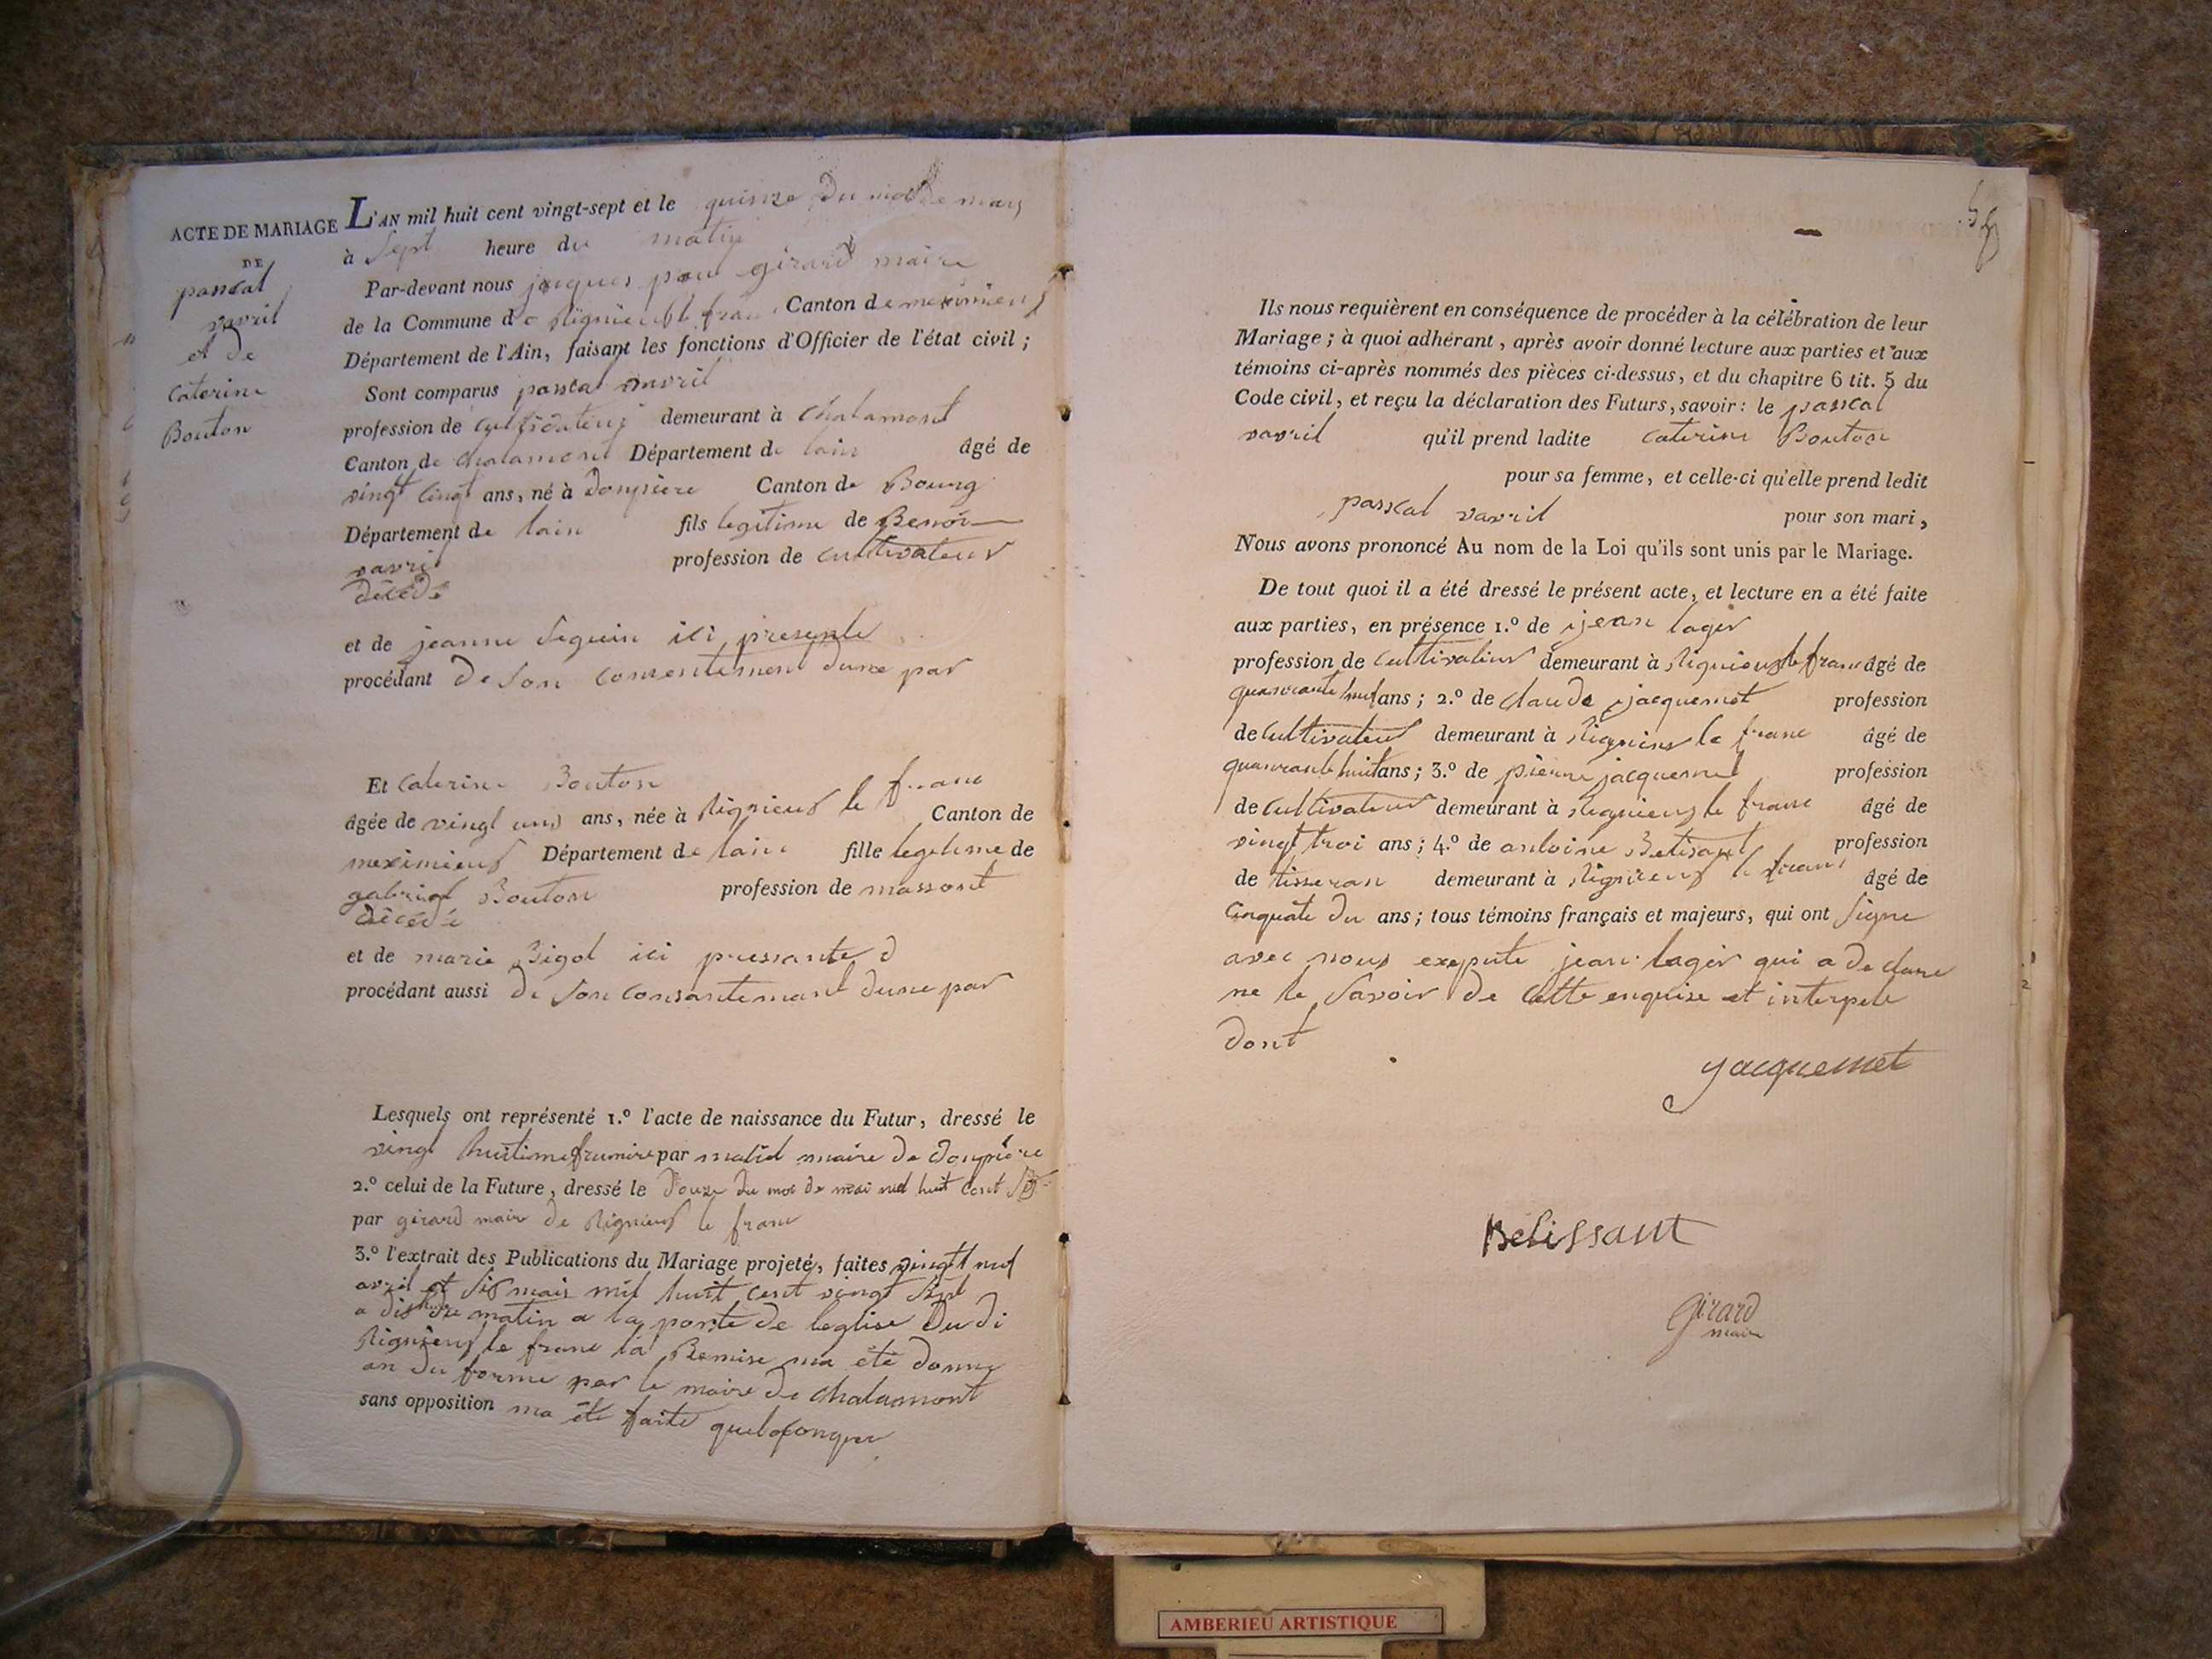 ACTE DE MARIAGE
DE
pascal
vavril
et de
Caterine
Bouton
L'AN mil huit cent vingt-sept et le quinze du mois de mars
à Sept heure du matin
Par-devant nous jaques girard maire
de la Commune de Rignieux le franc Canton de meximieux
Département de l'Ain, faisant les fonctions d'Officier de l'état civil ;
Sont comparus pascal vavril
profession de cultivateur demeurant à Chalamont
Canton de chalamont Département de lain âgé de
vingt cinq ans, né à Donpière Canton de Bourg
Département de lain fils legitime de Benoi
vavril profession de cultivateur
décédé
et de jeanne Seguin ici presente
procédant De Son consentement dune par
Et Caterine Bouton
âgée de vingt ans, née à Rignieux le franc Canton de
meximieux Département de lain fille legetime de
gabriel Bouton profession de massont
décédé
et de marie Bigot ici pressante
procédant aussi de Son Consantemant dune par
Lesquels ont représenté 1.º l'acte de naissance du Futur, dressé le
vingt huitime par maire de Donpière
2.º celui de la Future, dressé le Douze du moi de mai mil huit Cent
par girard maire de Rignieux le franc
3.º l'extrait des Publications du Mariage projeté, faites vingt
avril et mais mil huit cent vingt
a dis heure matin a la porte de leglise Du di
Rignieux le franc la Remise ma été donne
an du forme par le maire de Chalamont
sans opposition ma été faite quelconque
Ils nous requièrent en conséquence de procéder à la célébration de leur
Mariage ; à quoi adhérant, après avoir donné lecture aux parties et aux
témoins ci-après nommés des pièces ci-dessus, et du chapitre 6 tit. 5 du
Code civil, et reçu la déclaration des Futurs, savoir : le pascal
vavril qu'il prend ladite Caterine Bouton
pour sa femme, et celle-ci qu'elle prend ledit
pascal vavril pour son mari,
Nous avons prononcé Au nom de la Loi qu'ils sont unis par le Mariage.
De tout quoi il a été dressé le présent acte, et lecture en a été faite
aux parties, en présence 1.º de jean lager
profession de Cultivateur demeurant à Rignieux le franc âgé de
ans ; 2.º de claude jacquemet profession
de Cultivateur demeurant à Rignieux le franc âgé de
ans ; 3.º de pierre jacquemet profession
de Cultivateur demeurant à Rignieux le franc âgé de
vingt troi ans ; 4.º de antoine Belisant profession
de tisseran demeurant à Rignieux le franc âgé de
ans ; tous témoins français et majeurs, qui ont Signe
avec nous jean lager qui a declare
ne le Savoir de Cette enquise et interpele
Dont
jacquemet
Belissant
Girard
maire
AMBERIEU ARTISTIQUE